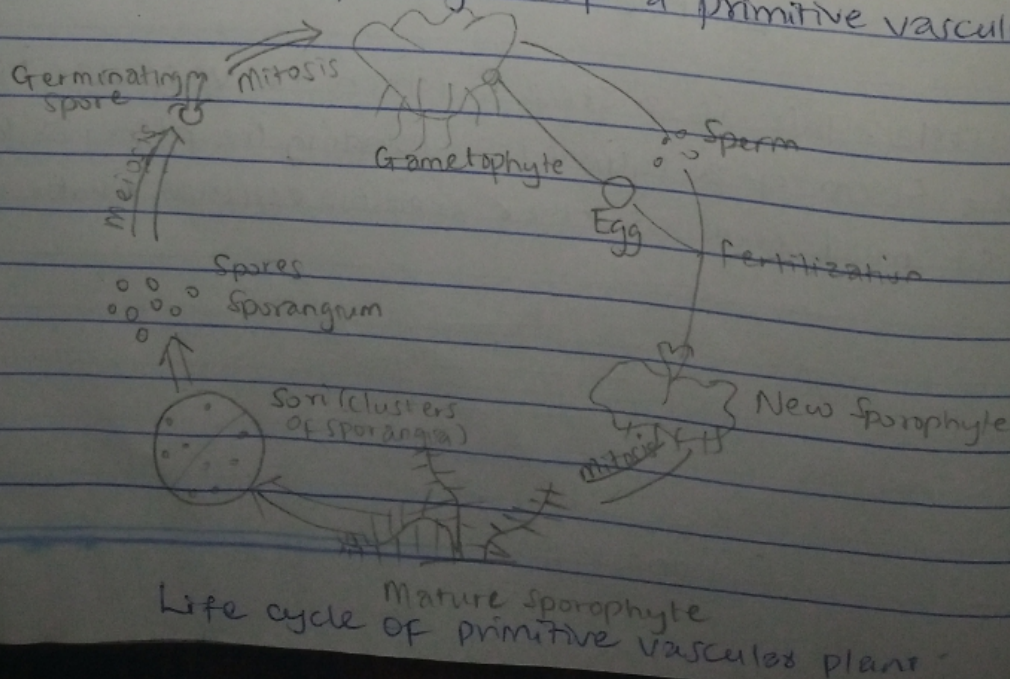 a primitive vascul
Germinating
spore
Mitosis
Gametophyte
Sperm
Egg
Fertilization
Meiosis
Spores
Sporangium
Sori (clusters
of sporangia)
New Sporophyte
Mitosis
Mature sporophyte
Life cycle of primitive vascular plant